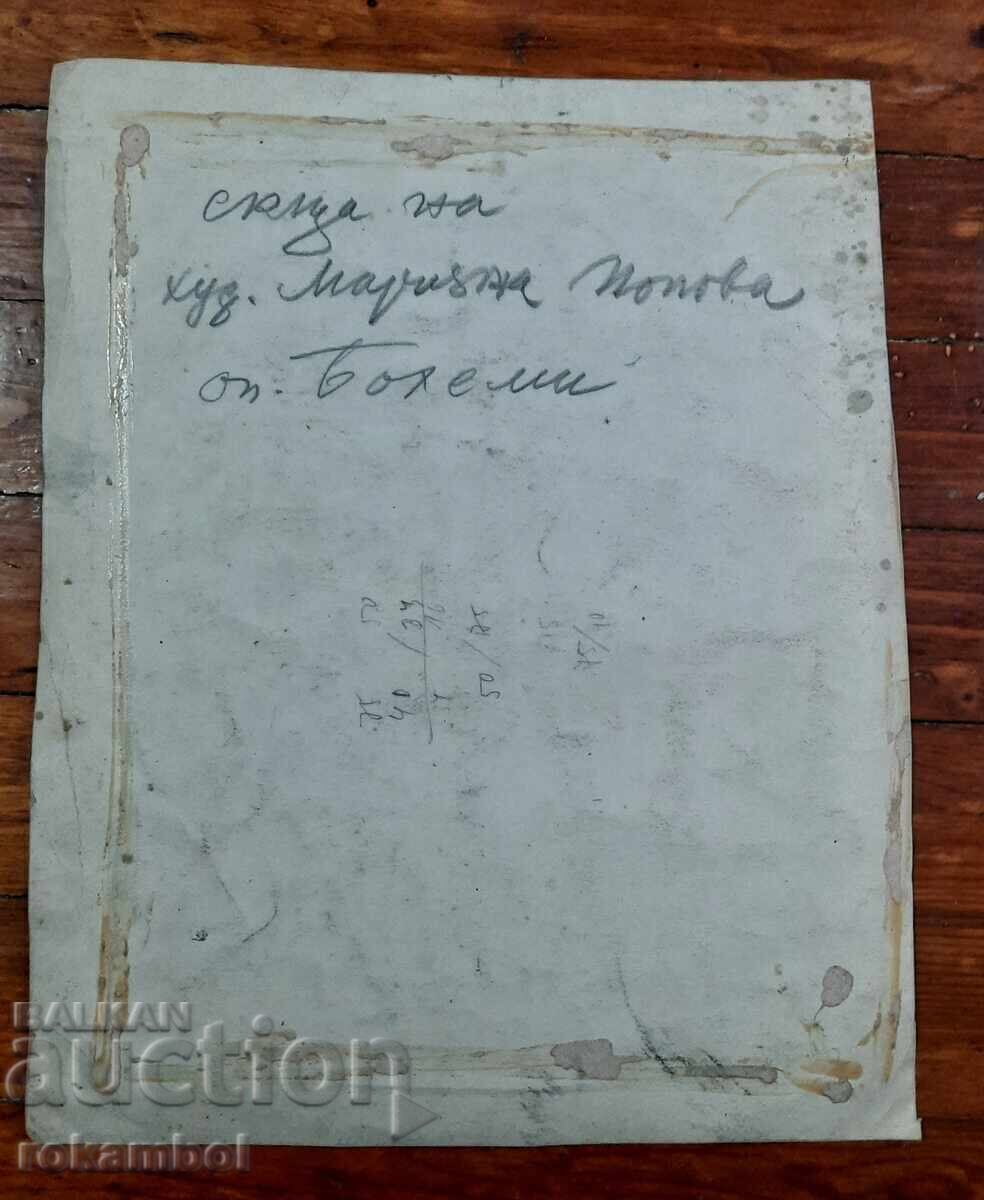 скица на
худ. Марияна Попова
оп. Бохеми
50/78
BALKAN
auction
rokambol